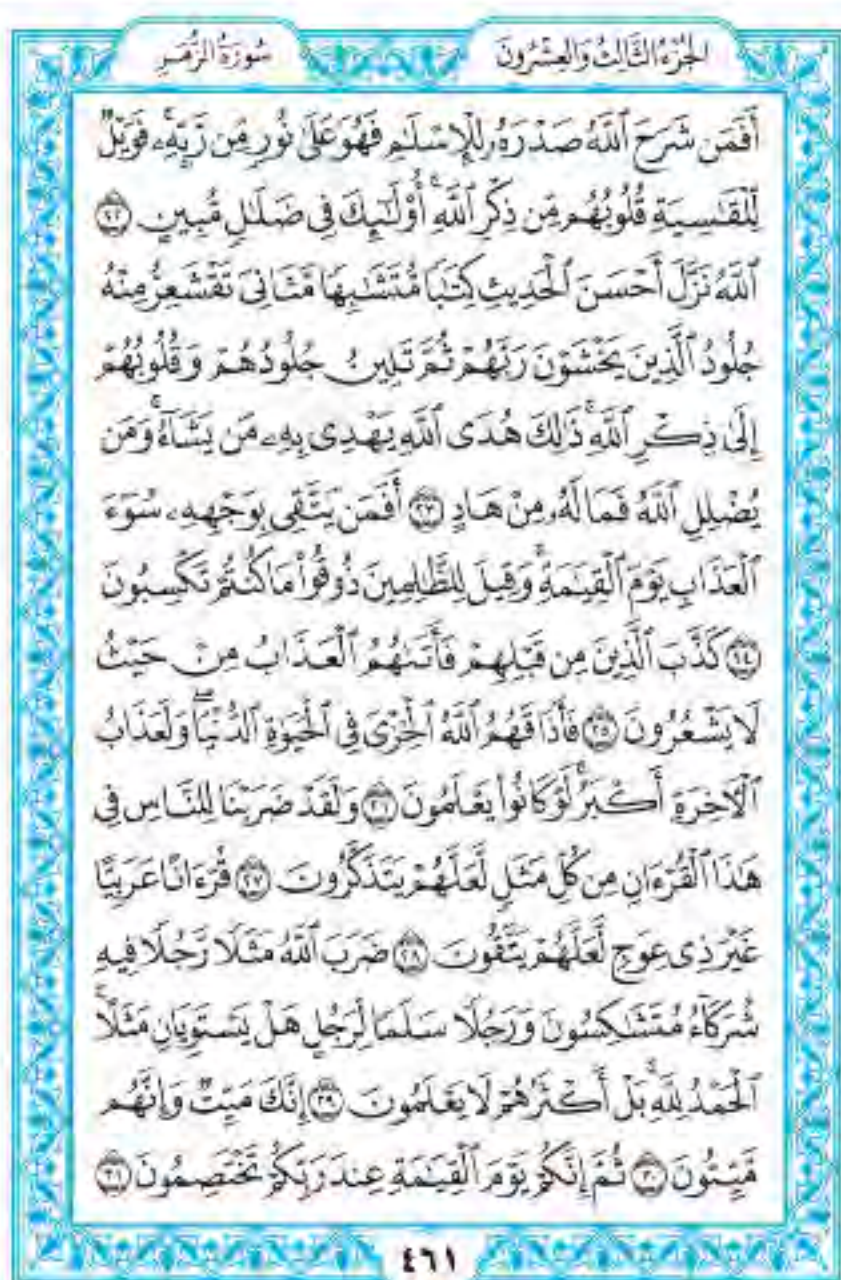 الجُزْءُ الثَّالِثُ وَالعِشْرُونَ
سُورَةُ الزُّمَرِ
أَفَمَن شَرَحَ ٱللَّهُ صَدْرَهُۥ لِلْإِسْلَٰمِ فَهُوَ عَلَىٰ نُورٍ مِّن رَّبِّهِۦۚ فَوَيْلٌ
لِّلْقَٰسِيَةِ قُلُوبُهُم مِّن ذِكْرِ ٱللَّهِۚ أُوْلَٰٓئِكَ فِى ضَلَٰلٍ مُّبِينٍ ٢٢
ٱللَّهُ نَزَّلَ أَحْسَنَ ٱلْحَدِيثِ كِتَٰبًا مُّتَشَٰبِهًا مَّثَانِىَ تَقْشَعِرُّ مِنْهُ
جُلُودُ ٱلَّذِينَ يَخْشَوْنَ رَبَّهُمْ ثُمَّ تَلِينُ جُلُودُهُمْ وَقُلُوبُهُمْ
إِلَىٰ ذِكْرِ ٱللَّهِۚ ذَٰلِكَ هُدَى ٱللَّهِ يَهْدِى بِهِۦ مَن يَشَآءُۚ وَمَن
يُضْلِلِ ٱللَّهُ فَمَا لَهُۥ مِنْ هَادٍ ٢٣ أَفَمَن يَتَّقِى بِوَجْهِهِۦ سُوٓءَ
ٱلْعَذَابِ يَوْمَ ٱلْقِيَٰمَةِۚ وَقِيلَ لِلظَّٰلِمِينَ ذُوقُوا۟ مَا كُنتُمْ تَكْسِبُونَ
٢٤ كَذَّبَ ٱلَّذِينَ مِن قَبْلِهِمْ فَأَتَىٰهُمُ ٱلْعَذَابُ مِنْ حَيْثُ
لَا يَشْعُرُونَ ٢٥ فَأَذَاقَهُمُ ٱللَّهُ ٱلْخِزْىَ فِى ٱلْحَيَوٰةِ ٱلدُّنْيَاۖ وَلَعَذَابُ
ٱلْءَاخِرَةِ أَكْبَرُۚ لَوْ كَانُوا۟ يَعْلَمُونَ ٢٦ وَلَقَدْ ضَرَبْنَا لِلنَّاسِ فِى
هَٰذَا ٱلْقُرْءَانِ مِن كُلِّ مَثَلٍ لَّعَلَّهُمْ يَتَذَكَّرُونَ ٢٧ قُرْءَانًا عَرَبِيًّا
غَيْرَ ذِى عِوَجٍ لَّعَلَّهُمْ يَتَّقُونَ ٢٨ ضَرَبَ ٱللَّهُ مَثَلًا رَّجُلًا فِيهِ
شُرَكَآءُ مُتَشَٰكِسُونَ وَرَجُلًا سَلَمًا لِّرَجُلٍ هَلْ يَسْتَوِيَانِ مَثَلًاۚ
ٱلْحَمْدُ لِلَّهِۚ بَلْ أَكْثَرُهُمْ لَا يَعْلَمُونَ ٢٩ إِنَّكَ مَيِّتٌ وَإِنَّهُم
مَّيِّتُونَ ٣٠ ثُمَّ إِنَّكُمْ يَوْمَ ٱلْقِيَٰمَةِ عِندَ رَبِّكُمْ تَخْتَصِمُونَ ٣١
٤٦١